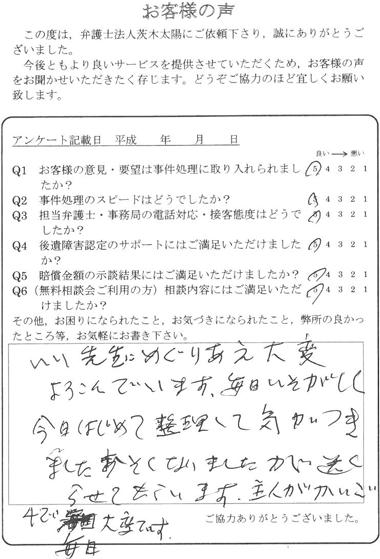 お客様の声
この度は、弁護士法人茨木太陽にご依頼下さり，誠にありがとうご
ざいました。
今後ともより良いサービスを提供させていただくため，お客様の声
をお聞かせいただきたく存じます。どうぞご協力のほど宜しくお願い
致します。
アンケート記載日 平成 年 月 日
良い → 悪い
Q1 お客様の意見・要望は事件処理に取り入れられまし
たか？ 5 4 3 2 1
Q2 事件処理のスピードはどうでしたか？ 5 4 3 2 1
Q3 担当弁護士・事務局の電話対応・接客態度はどうで
したか？ 5 4 3 2 1
Q4 後遺障害認定のサポートにはご満足いただけました
か？ 5 4 3 2 1
Q5 賠償金額の示談結果にはご満足いただけましたか？ 5 4 3 2 1
Q6（無料相談会ご利用の方）相談内容にはご満足いただ
けましたか？ 5 4 3 2 1
その他，お困りになられたこと，お気づきになられたこと，弊所の良かっ
たところ等，お気軽にお書き下さい。
いい先生にめぐりあえ大変
よろこんでいます、毎日いそがしく
今日はじめて整理して気がつき
ましたおそくなりましたが送ら
せてもらいます。主人がかいご
4で 大変です。
毎日
ご協力ありがとうございました。